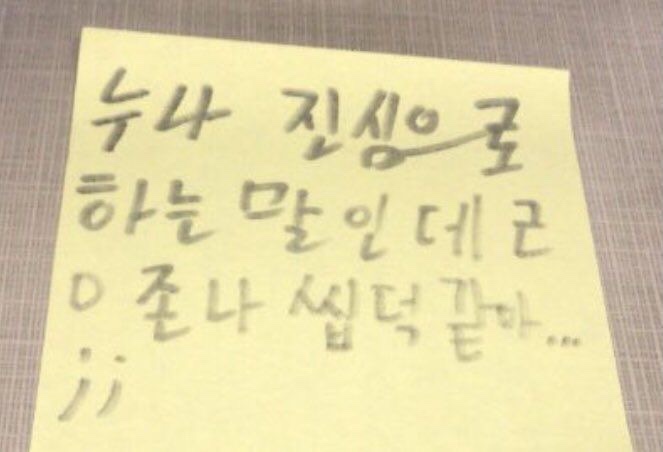 누나 진심으로
하는 말인데 ㄹ
ㅇ 존나 씹덕 같아...
;;